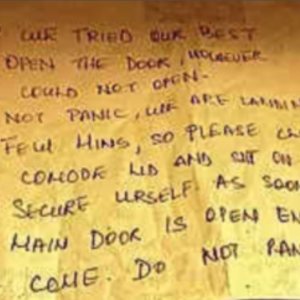 WE TRIED OUR BEST
OPEN THE DOOR, HOWEVER
COULD NOT OPEN-
NOT PANIC, WE ARE LANDIN
FEW MINS, SO PLEASE CL
COMODE LID AND SIT ON
SECURE URSELF. AS SOON
MAIN DOOR IS OPEN EN
COME. DO NOT PAN